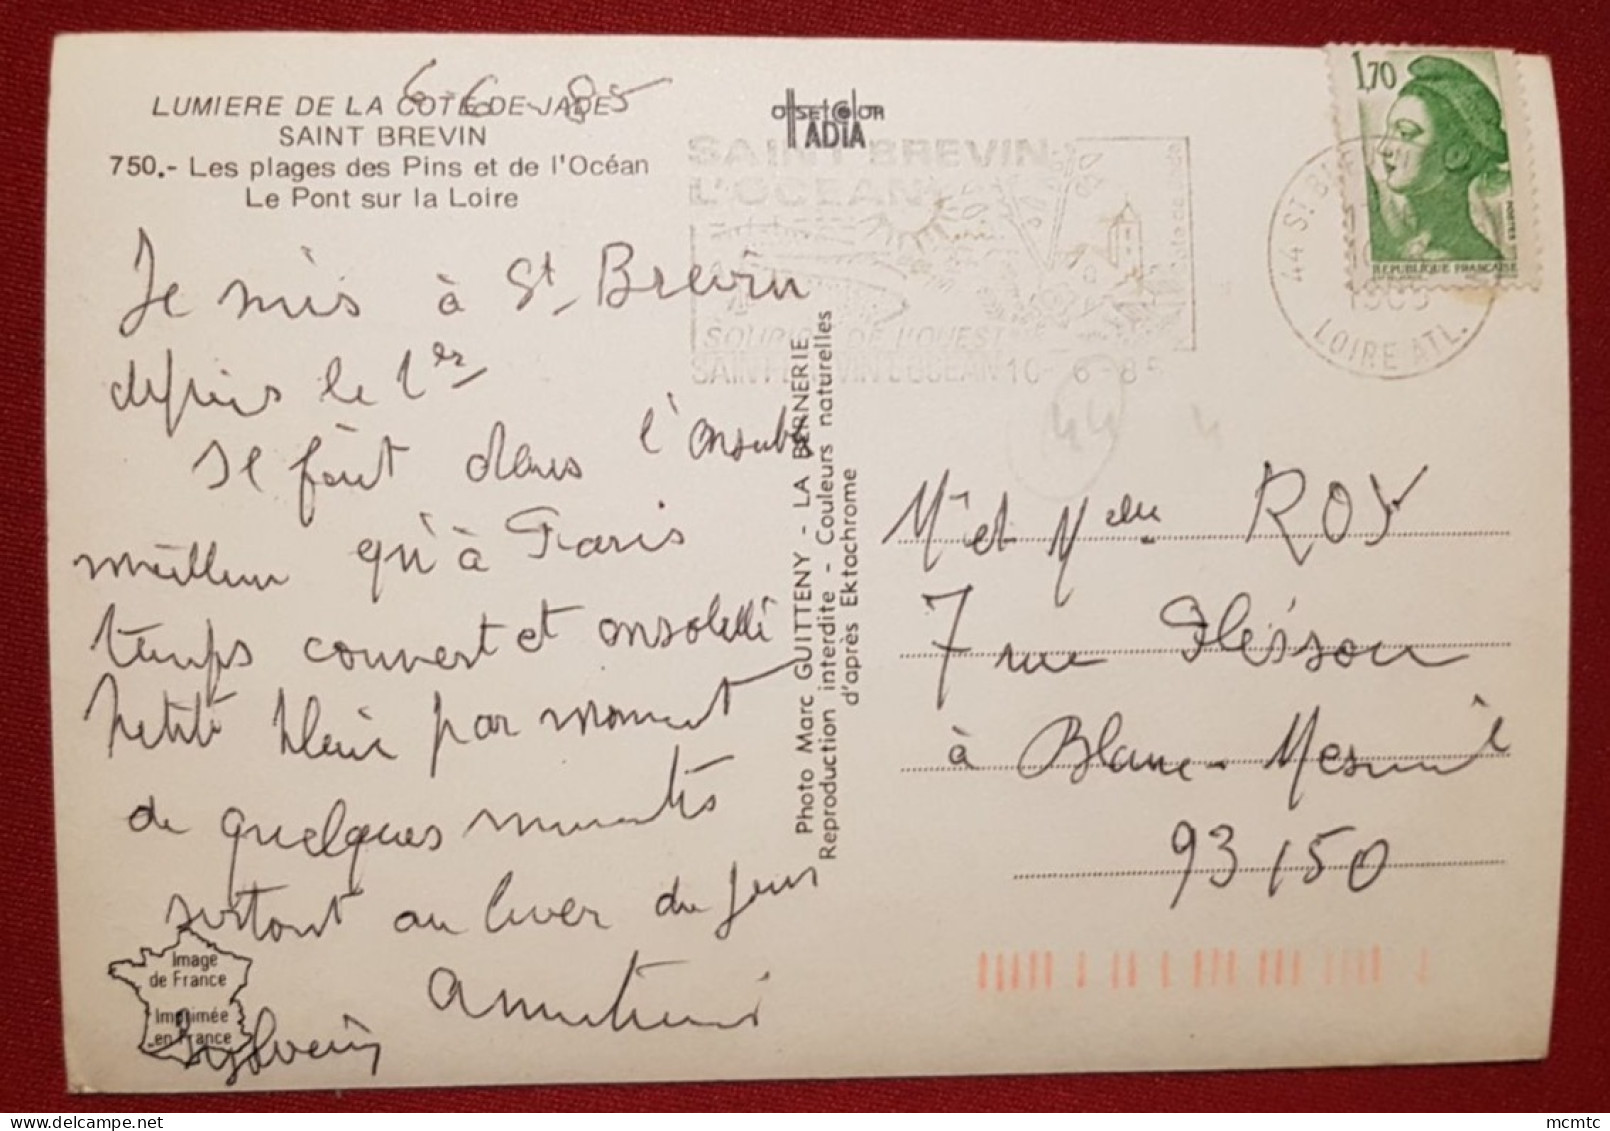 6-6-85
LUMIERE DE LA COTE DE JADE
SAINT BREVIN
750.- Les plages des Pins et de l'Océan
Le Pont sur la Loire
Je suis à St Brevin
depuis le 1er
Il fait dans l'ensemble
meilleur qu'à Paris
temps couvert et ensoleillé
petite pluie par moment
de quelques minutes
surtout au lever du jour
amitiés
Sylvain
Image
de France
Imprimée
en France
offset Color
ADIA
SAINT-BREVIN
L'OCEAN
SOURIRE DE L'OUEST
SAINT-BREVIN L'OCEAN 10-6-85
44 ST BREVIN
1985
LOIRE ATL.
1,70
POSTES
REPUBLIQUE FRANÇAISE
Photo Marc GUITTENY - LA BERNERIE
Reproduction interdite - Couleurs naturelles
d'après Ektachrome
44
Mr et Mme ROY
7 rue
à Blanc-Mesnil
93150
mcmtc